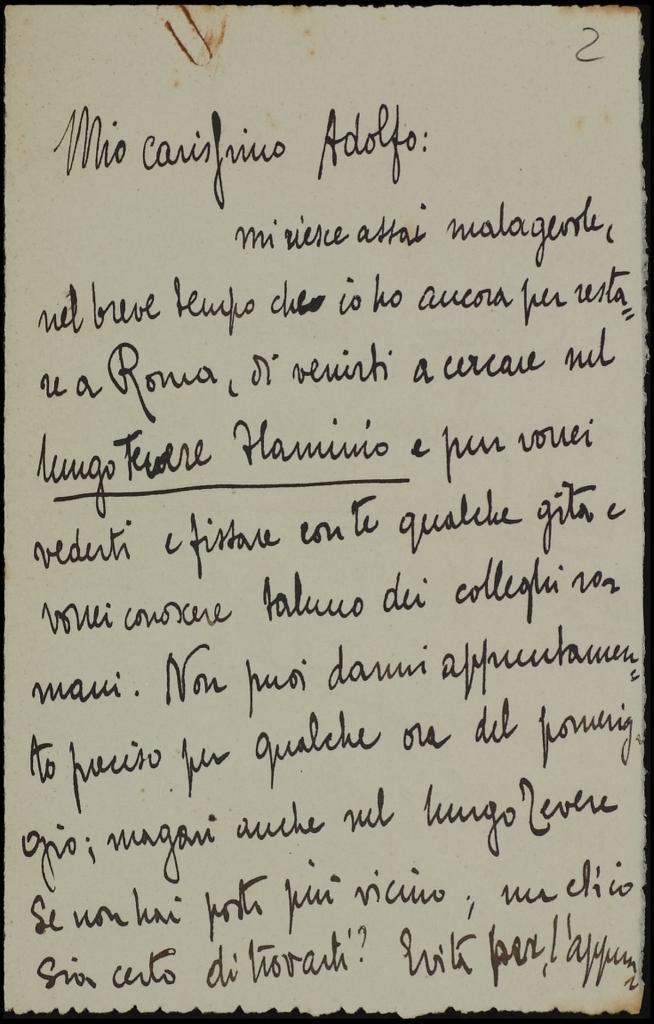 2
Mio carissimo Adolfo:
mi riesce assai malagevole,
nel breve tempo che io ho ancora per resta=
re a Roma, di venirti a cercare nel
lungo Tevere Flaminio e pur vorrei
vederti e fissare con te qualche gita e
vorrei conoscere taluno dei colleghi ro=
mani. Non puoi darmi appuntamen=
to preciso per qualche ora del pomerig
gio; magari anche nel lungo Tevere
se non hai posti più vicino, ma ch'io
sia certo di trovarti? Evita per l'appun=